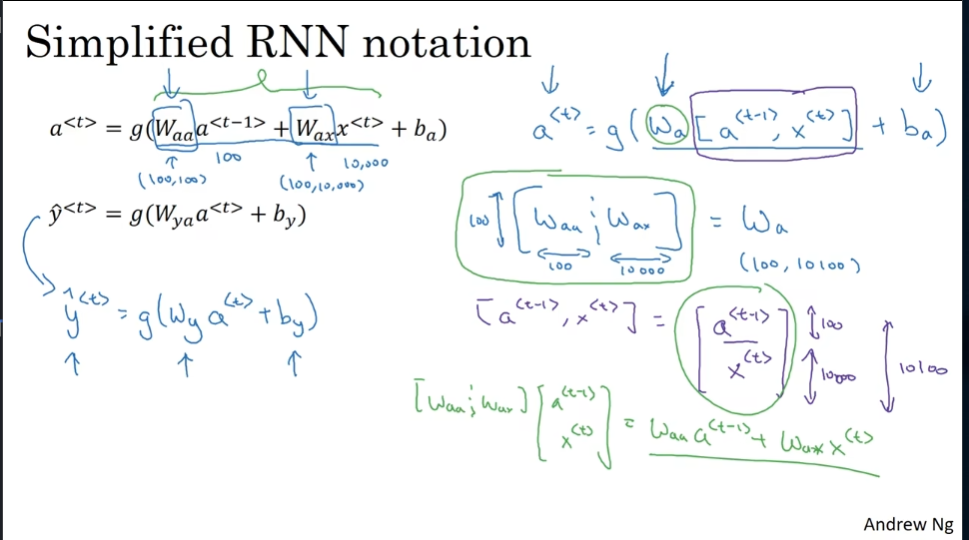 Simplified RNN notation
a<t> = g(Waa a<t−1> + Wax x<t> + ba)
100
10,000
(100,100)
(100,10,000)
ŷ<t> = g(Wya a<t> + by)
ŷ<t> = g(Wy a<t> + by)
a<t> = g(Wa [a<t-1>, x<t>] + ba)
100 [Waa ; Wax] = Wa
100
10000
(100, 10100)
[a<t-1>, x<t>] = [a<t-1>
x<t>]
100
10000
10100
[Waa ; Wax] [a<t-1>
x<t>] = Waa a<t-1> + Wax x<t>
Andrew Ng